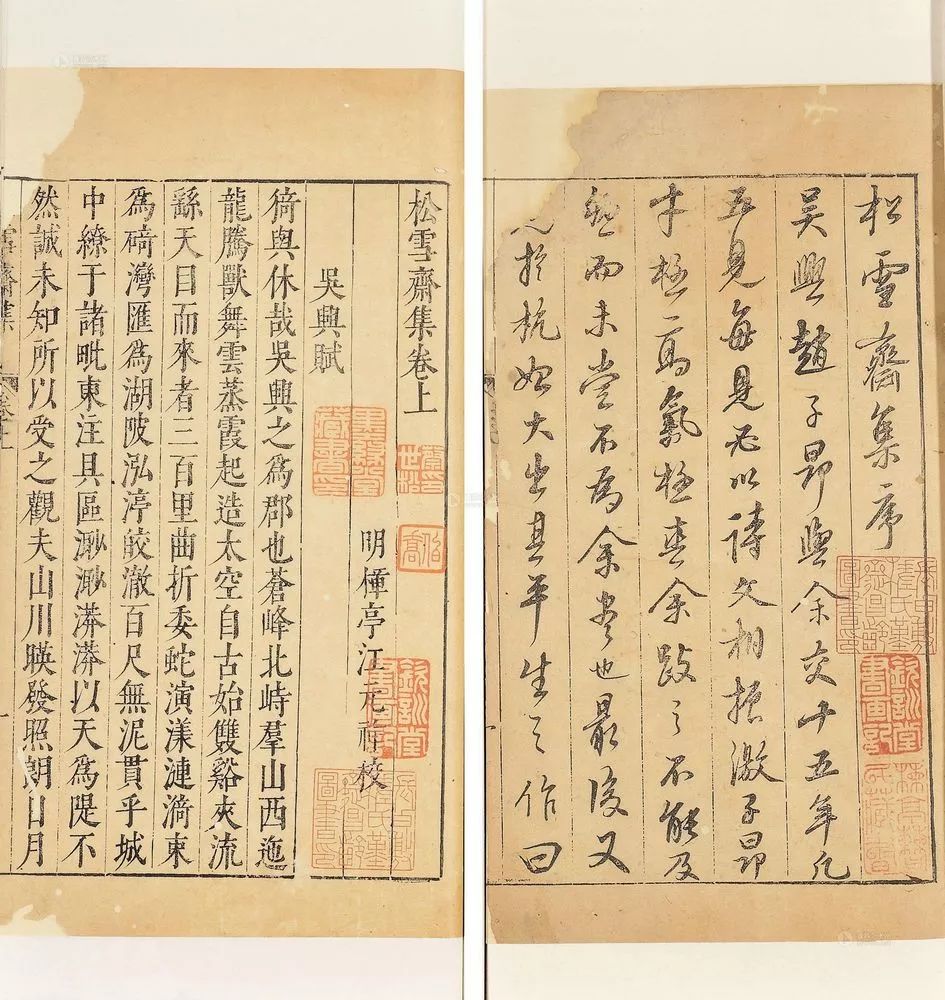 松雪齋集序
吳興趙子昂與余交十五年凡
五見每見必以詩文相振激子昂
才極高氣極爽余跂之不能及
然而未嘗不為余盡也最後又
見於杭始大出其平生之作曰
松雪齋集卷上
明橦亭江元祚校
吳興賦
猗與休哉吳興之爲郡也蒼峰北峙羣山西迤
龍騰獸舞雲蒸霞起造太空自古始雙谿夾流
繇天目而來者三百里曲折委蛇演漾漣漪束
爲碕灣匯爲湖陂泓渟皎澈百尺無泥貫乎城
中繚于諸毗東注具區渺渺漭漭以天爲隄不
然誠未知所以受之觀夫山川暎發照朗日月